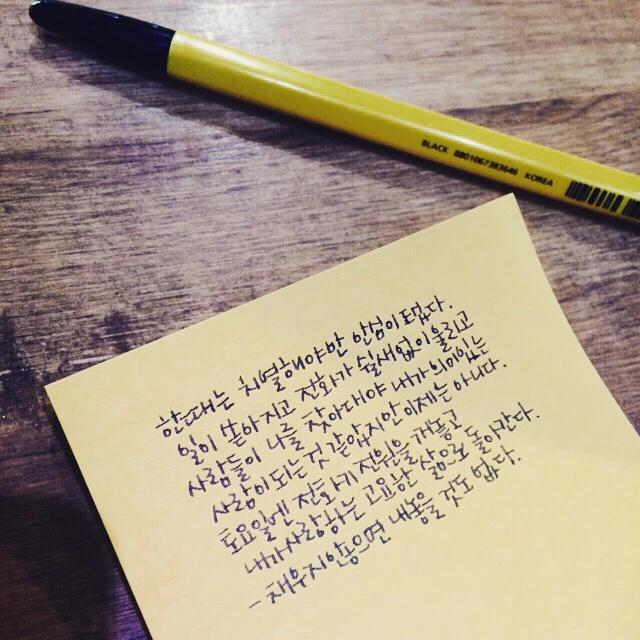 BLACK 8801067383646 KOREA
한때는 치열해야만 안심이 됐다.
일이 쏟아지고 전화가 쉴새없이 울리고
사람들이 나를 찾아대야 내가 의미있는
사람이 되는 것 같았지만 이제는 아니다.
토요일엔 전화기 전원을 꺼놓고
내가 사랑하는 고요한 삶으로 돌아간다.
- 채우지 않으면 내놓을 것도 없다.